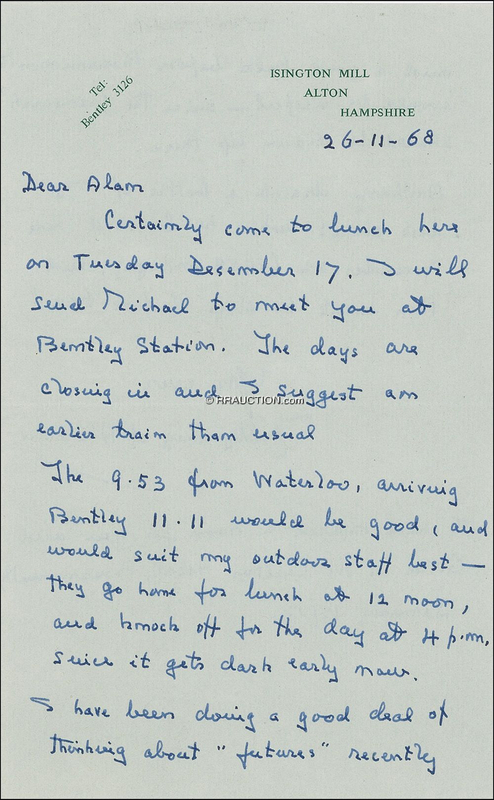 Tel:
Bentley 3126
ISINGTON MILL
ALTON
HAMPSHIRE
26-11-68
Dear Alan
Certainly come to lunch here
on Tuesday December 17. I will
send Michael to meet you at
Bentley Station. The days are
closing in and I suggest an
© RRAUCTION.com
earlier train than usual
The 9.53 from Waterloo, arriving
Bentley 11.11 would be good, and
would suit my outdoor staff best —
they go home for lunch at 12 noon,
and knock off for the day at 4 p.m,
since it gets dark early now.
I have been doing a good deal of
thinking about "futures" recently